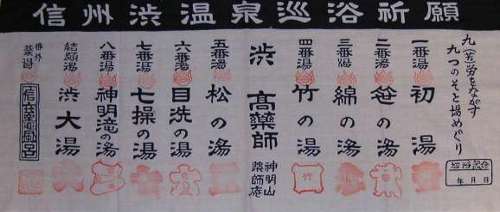 信州渋温泉巡浴祈願
九(苦)労をながす
九つのそと湯めぐり
巡浴祈念
年 月 日
一番湯
初湯
二番湯
笹の湯
三番湯
綿の湯
四番湯
竹の湯
渋 高薬師
神明山
薬師庵
五番湯
松の湯
六番湯
目洗の湯
七番湯
七操の湯
八番湯
神明滝の湯
結願湯
渋大湯
番外